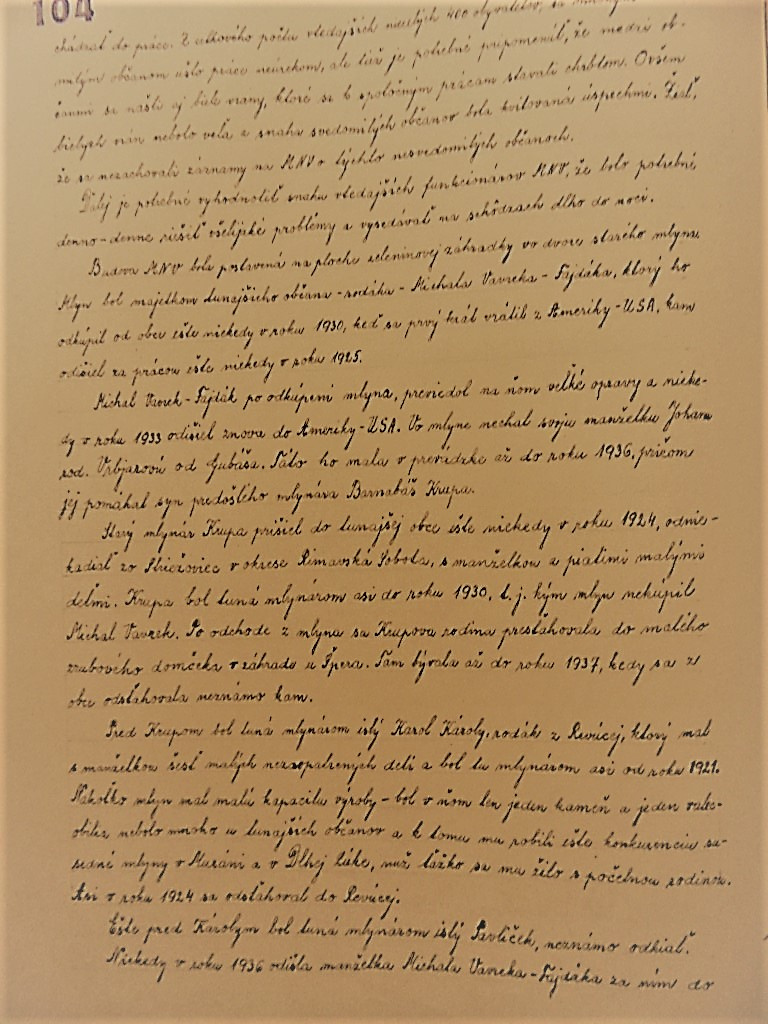 104
chádzať do práce. Z celkového počtu vtedajších necelých 400 obyvateľov, sa
milým občanom ušlo práce neúrekom, ale tiež je potrebné pripomenúť, že medzi ob-
čanmi sa našli aj biele vrany, ktoré sa k spoločným prácam stavali chrbtom. Ovšem
bielych vrán nebolo veľa a snaha svedomitých občanov bola kvitovaná úspechmi. Žiaľ,
že sa nezachovali záznamy na MNV o týchto nesvedomitých občanoch.
Ďalej je potrebné vyhodnotiť snahu vtedajších funkcionárov MNV, že bolo potrebné
denno-denne riešiť všelijaké problémy a vysedávať na schôdzach dlho do noci.
Budova MNV bola postavená na ploche zeleninovej záhradky vo dvore starého mlyna.
Mlyn bol majetkom tunajšieho občana-rodáka - Michala Vavreka - Fajdáka, ktorý ho
odkúpil od obce ešte niekedy v roku 1930, keď sa prvý krát vrátil z Ameriky - USA, kam
odišiel za prácou ešte niekedy v roku 1925.
Michal Vavrek - Fajdák po odkúpení mlyna, previedol na ňom veľké opravy a nieke-
dy v roku 1933 odišiel znova do Ameriky - USA. Vo mlyne nechal svoju manželku Johanu
rod. Vrbjarovú od Gubáša. Táto ho mala v prevádzke až do roku 1936, pričom
jej pomáhal syn predošlého mlynára Barnabáš Krupa.
Starý mlynár Krupa prišiel do tunajšej obce ešte niekedy v roku 1924, odnie-
kadiaľ zo Striežoviec v okrese Rimavská Sobota, s manželkou a piatimi malými
deťmi. Krupa bol tuná mlynárom asi do roku 1930, t. j. kým mlyn nekúpil
Michal Vavrek. Po odchode z mlyna sa Krupova rodina presťahovala do malého
zrubového domčeka v záhrade u Špera. Tam bývala až do roku 1937, kedy sa z
obce odsťahovala neznámo kam.
Pred Krupom bol tuná mlynárom istý Karol Károly, rodák z Revúcej, ktorý mal
s manželkou šesť malých nezaopatrených detí a bol tu mlynárom asi od roku 1921.
Nakoľko mlyn mal malú kapacitu výroby - bol v ňom len jeden kameň a jeden valec-
obilia nebolo mnoho u tunajších občanov a k tomu mu robili ešte konkurenciu su-
sedné mlyny v Muráni a v Dlhej lúke, nuž ťažko sa mu žilo s početnou rodinou.
Asi v roku 1924 sa odsťahoval do Revúcej.
Ešte pred Károlym bol tuná mlynárom istý Pavlíček, neznámo odkiaľ.
Niekedy v roku 1936 odišla manželka Michala Vavreka - Fajdáka za ním do